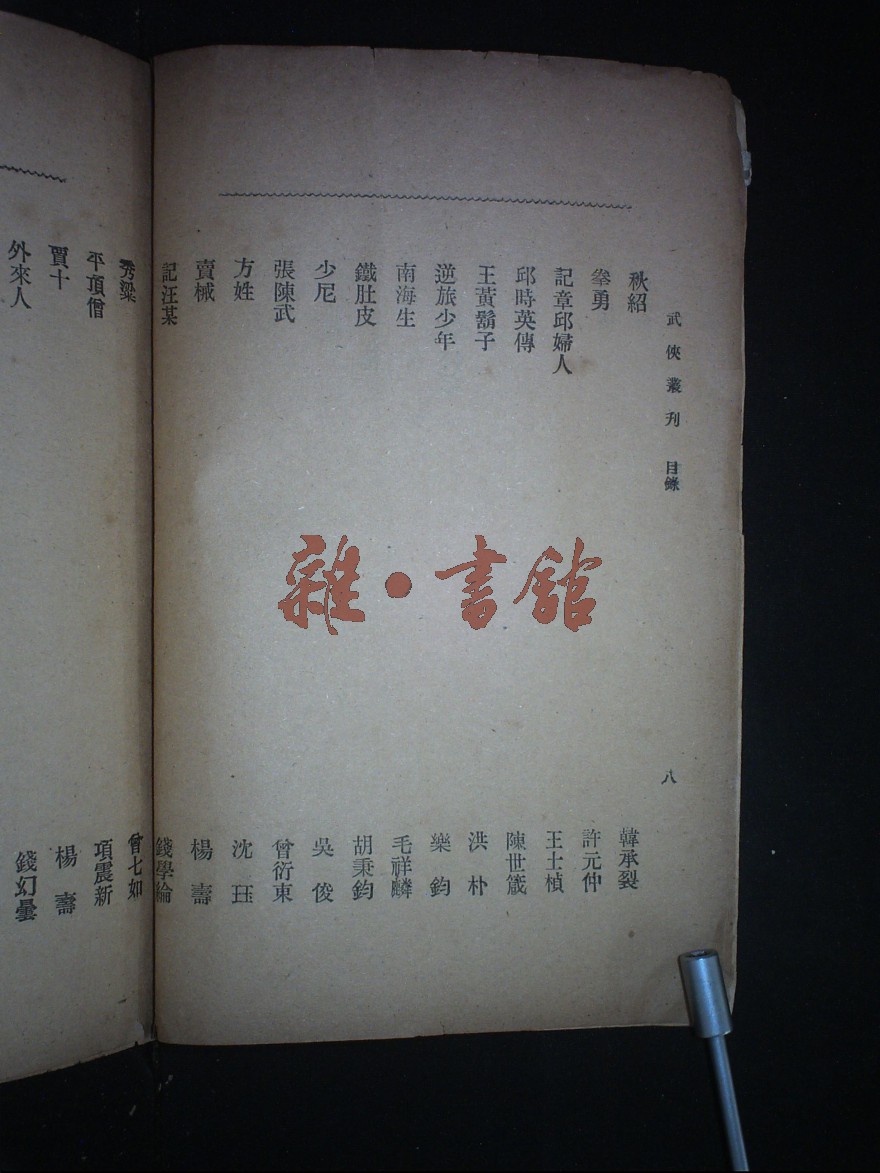 武俠叢刊 目錄 八
秋紹 韓承裂
拳勇 許元仲
記章邱婦人 王士楨
邱時英傳 陳世箴
王黃鬍子 洪朴
逆旅少年 樂鈞
南海生 毛祥麟
鐵肚皮 胡秉鈞
少尼 吳俊
張陳武 曾衍東
方姓 沈珏
賣械 楊壽
記汪某 錢學綸
秀粱 曾七如
平項僧 項震新
賈十 楊壽
外來人 錢幻曇
雜·書館